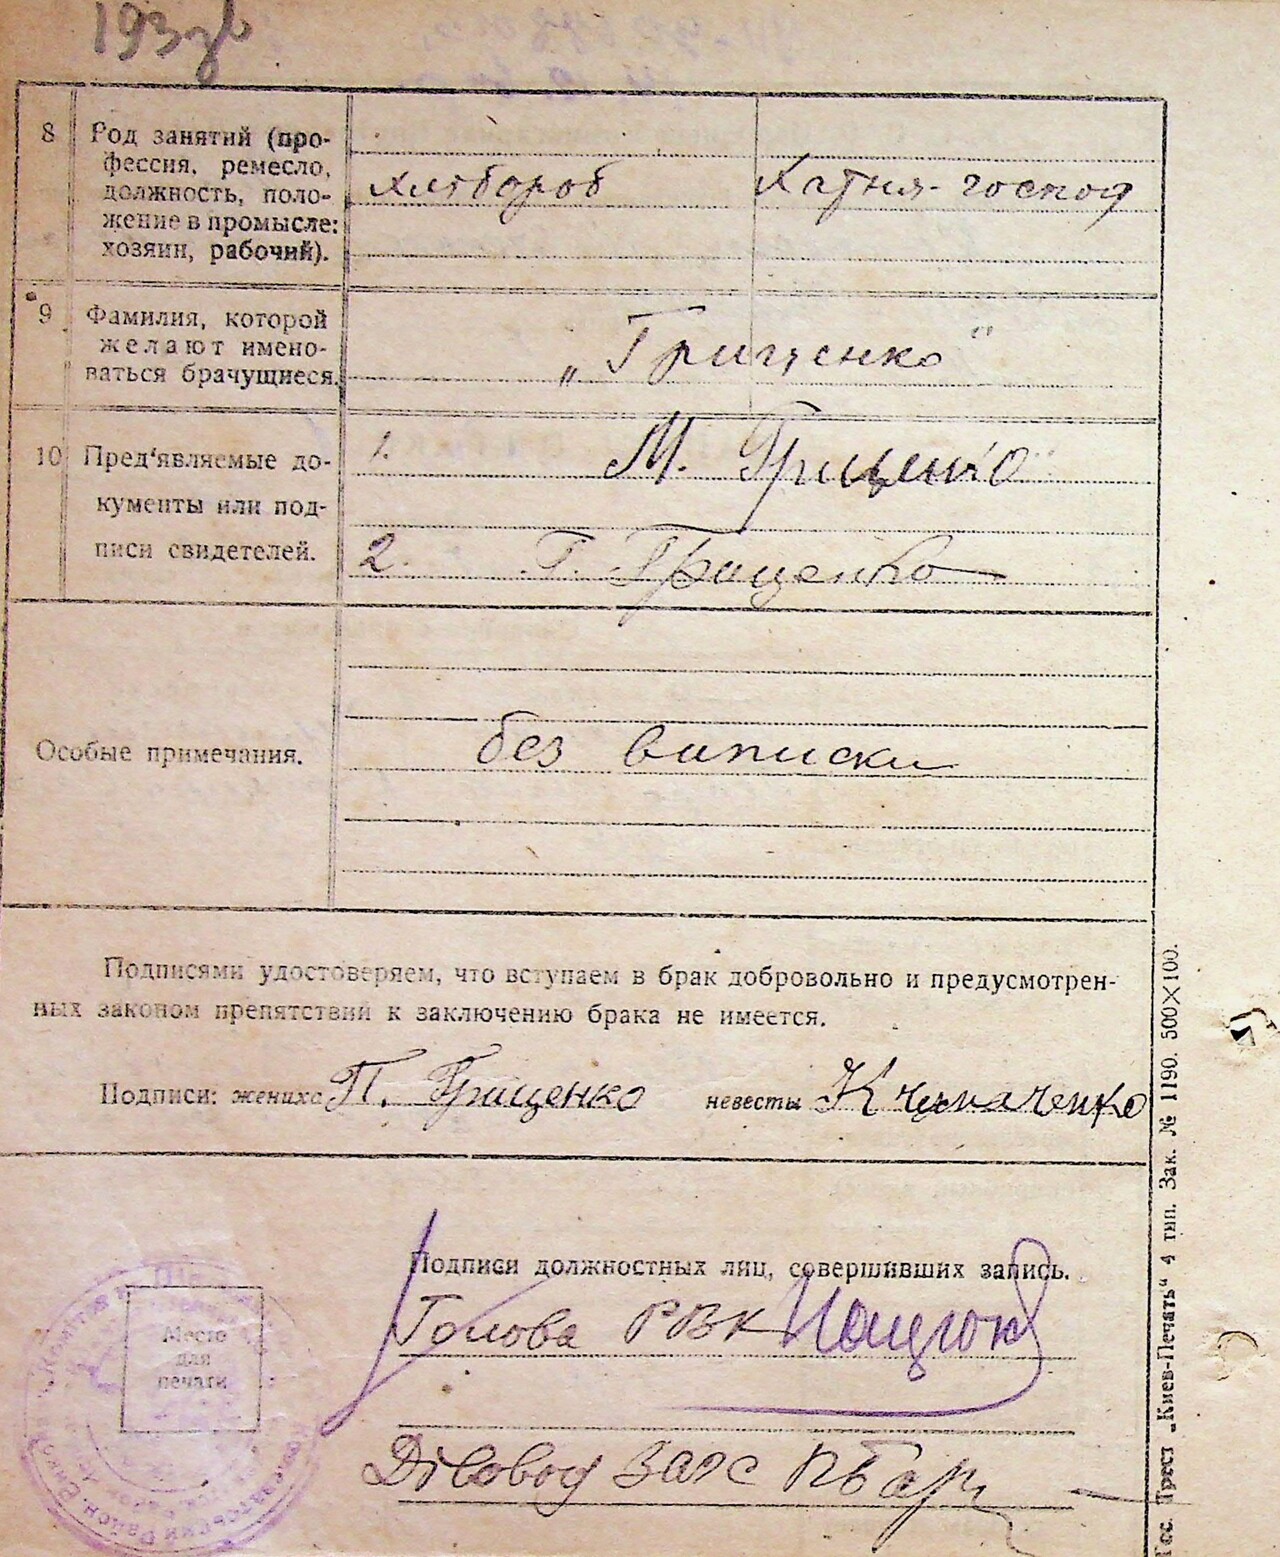 193зв
8 Род занятий (про-
фессия, ремесло,
должность, поло-
жение в промысле:
хозяин, рабочий).
хлібороб Хатня-господ
9 Фамилия, которой
желают имено-
ваться брачущиеся.
„Грищенко"
10 Пред'являемые до-
кументы или под-
писи свидетелей.
1. М. Грищенко
2. Г. Грищенко
Особые примечания.
без виписки
Подписями удостоверяем, что вступаем в брак добровольно и предусмотрен-
ных законом препятствий к заключению брака не имеется.
Подписи: жениха П. Грищенко невесты К
Подписи должностных лиц, совершивших запись.
Голова РВК
Место
для
печати
Діловод ЗАГС
Гос. Трест „Киев-Печать" 4 тип. Зак. № 1190. 500×100.